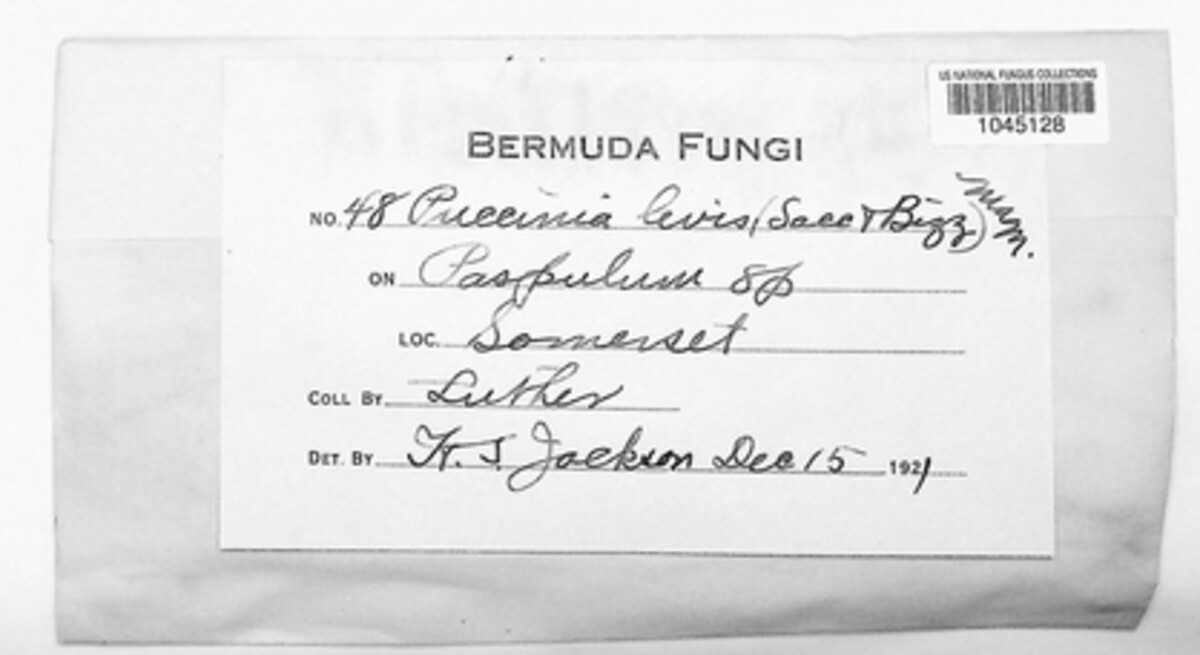 US NATIONAL FUNGUS COLLECTIONS
1045128
BERMUDA FUNGI
NO. 48 Puccinia levis (Sacc & Bizz) Magn.
ON Paspulum sp
LOC. Somerset
COLL BY Luther
DET. BY H. S. Jackson Dec 15 1921